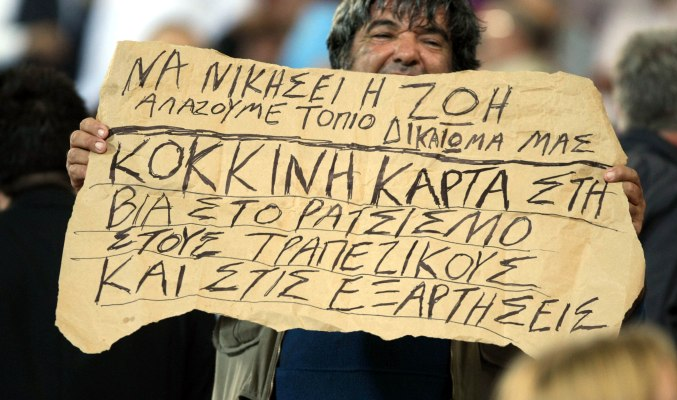 ΝΑ ΝΙΚΗΣΕΙ Η ΖΩΗ
ΑΛΑΖΟΥΜΕ ΤΟΠΙΟ ΔΙΚΑΙΩΜΑ ΜΑΣ
ΚΟΚΚΙΝΗ ΚΑΡΤΑ ΣΤΗ
ΒΙΑ ΣΤΟ ΡΑΤΣΙΣΜΟ
ΣΤΟΥΣ ΤΡΑΠΕΖΙΚΟΥΣ
ΚΑΙ ΣΤΙΣ ΕΞΑΡΤΗΣΕΙΣ